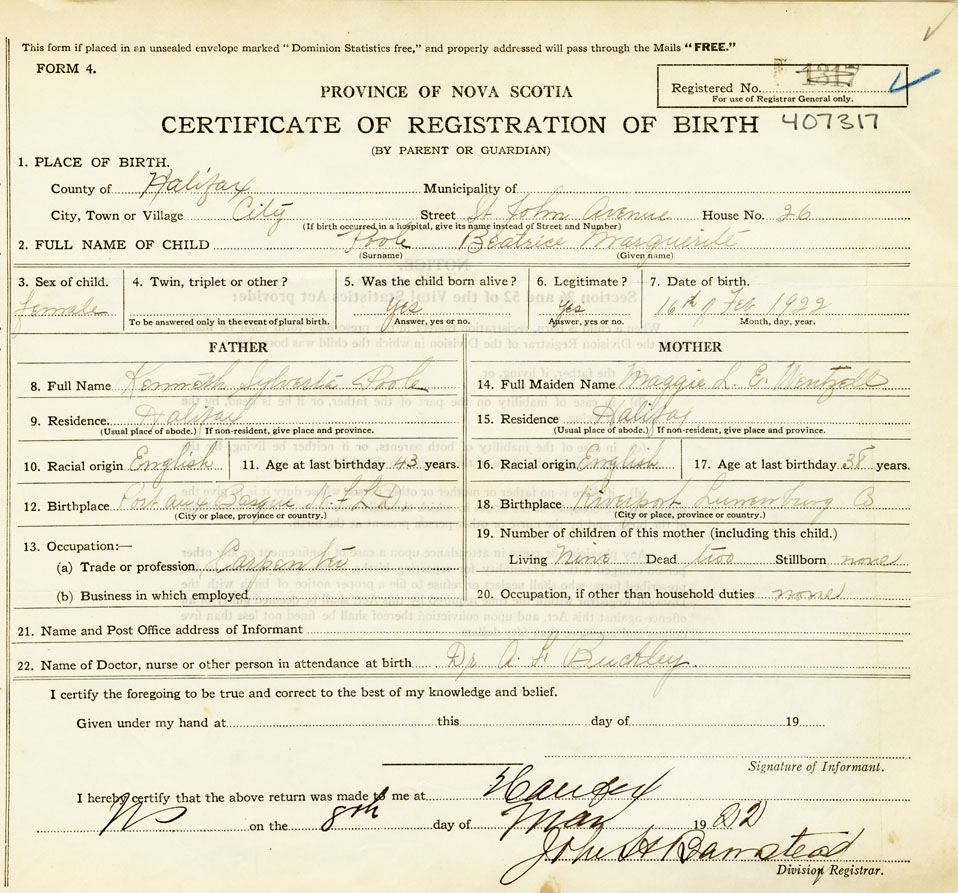 This form if placed in an unsealed envelope marked "Dominion Statistics free," and properly addressed will pass through the Mails "FREE."
FORM 4.
Registered No. 1317
For use of Registrar General only.
PROVINCE OF NOVA SCOTIA
CERTIFICATE OF REGISTRATION OF BIRTH 407317
(BY PARENT OR GUARDIAN)
1. PLACE OF BIRTH.
County of Halifax Municipality of
City, Town or Village City Street St John Avenue House No. 26
(If birth occurred in a hospital, give its name instead of Street and Number)
2. FULL NAME OF CHILD Poole Beatrice Marguerite
(Surname) (Given name)
3. Sex of child. 4. Twin, triplet or other? 5. Was the child born alive? 6. Legitimate? 7. Date of birth.
female yes yes 16th of Feb 1922
To be answered only in the event of plural birth. Answer, yes or no. Answer, yes or no. Month, day, year.
FATHER MOTHER
8. Full Name Kenneth Sylvester Poole 14. Full Maiden Name Maggie L. E. Wentzell
9. Residence Halifax 15. Residence Halifax
(Usual place of abode.) If non-resident, give place and province. (Usual place of abode.) If non-resident, give place and province.
10. Racial origin English 11. Age at last birthday 43 years. 16. Racial origin English 17. Age at last birthday years.
12. Birthplace Port aux Basque N.F.L.D. 18. Birthplace Riverport Lunenburg
(City or place, province or country.) (City or place, province or country.)
19. Number of children of this mother (including this child.)
13. Occupation:—
(a) Trade or profession Carpenter Living Nine Dead two Stillborn none
(b) Business in which employed 20. Occupation, if other than household duties none
21. Name and Post Office address of Informant
22. Name of Doctor, nurse or other person in attendance at birth Dr A. F. Buckley.
I certify the foregoing to be true and correct to the best of my knowledge and belief.
Given under my hand at this day of 19
Signature of Informant.
I hereby certify that the above return was made to me at Halifax
NS on the 8th day of Mar 1922
John H Barnstead
Division Registrar.